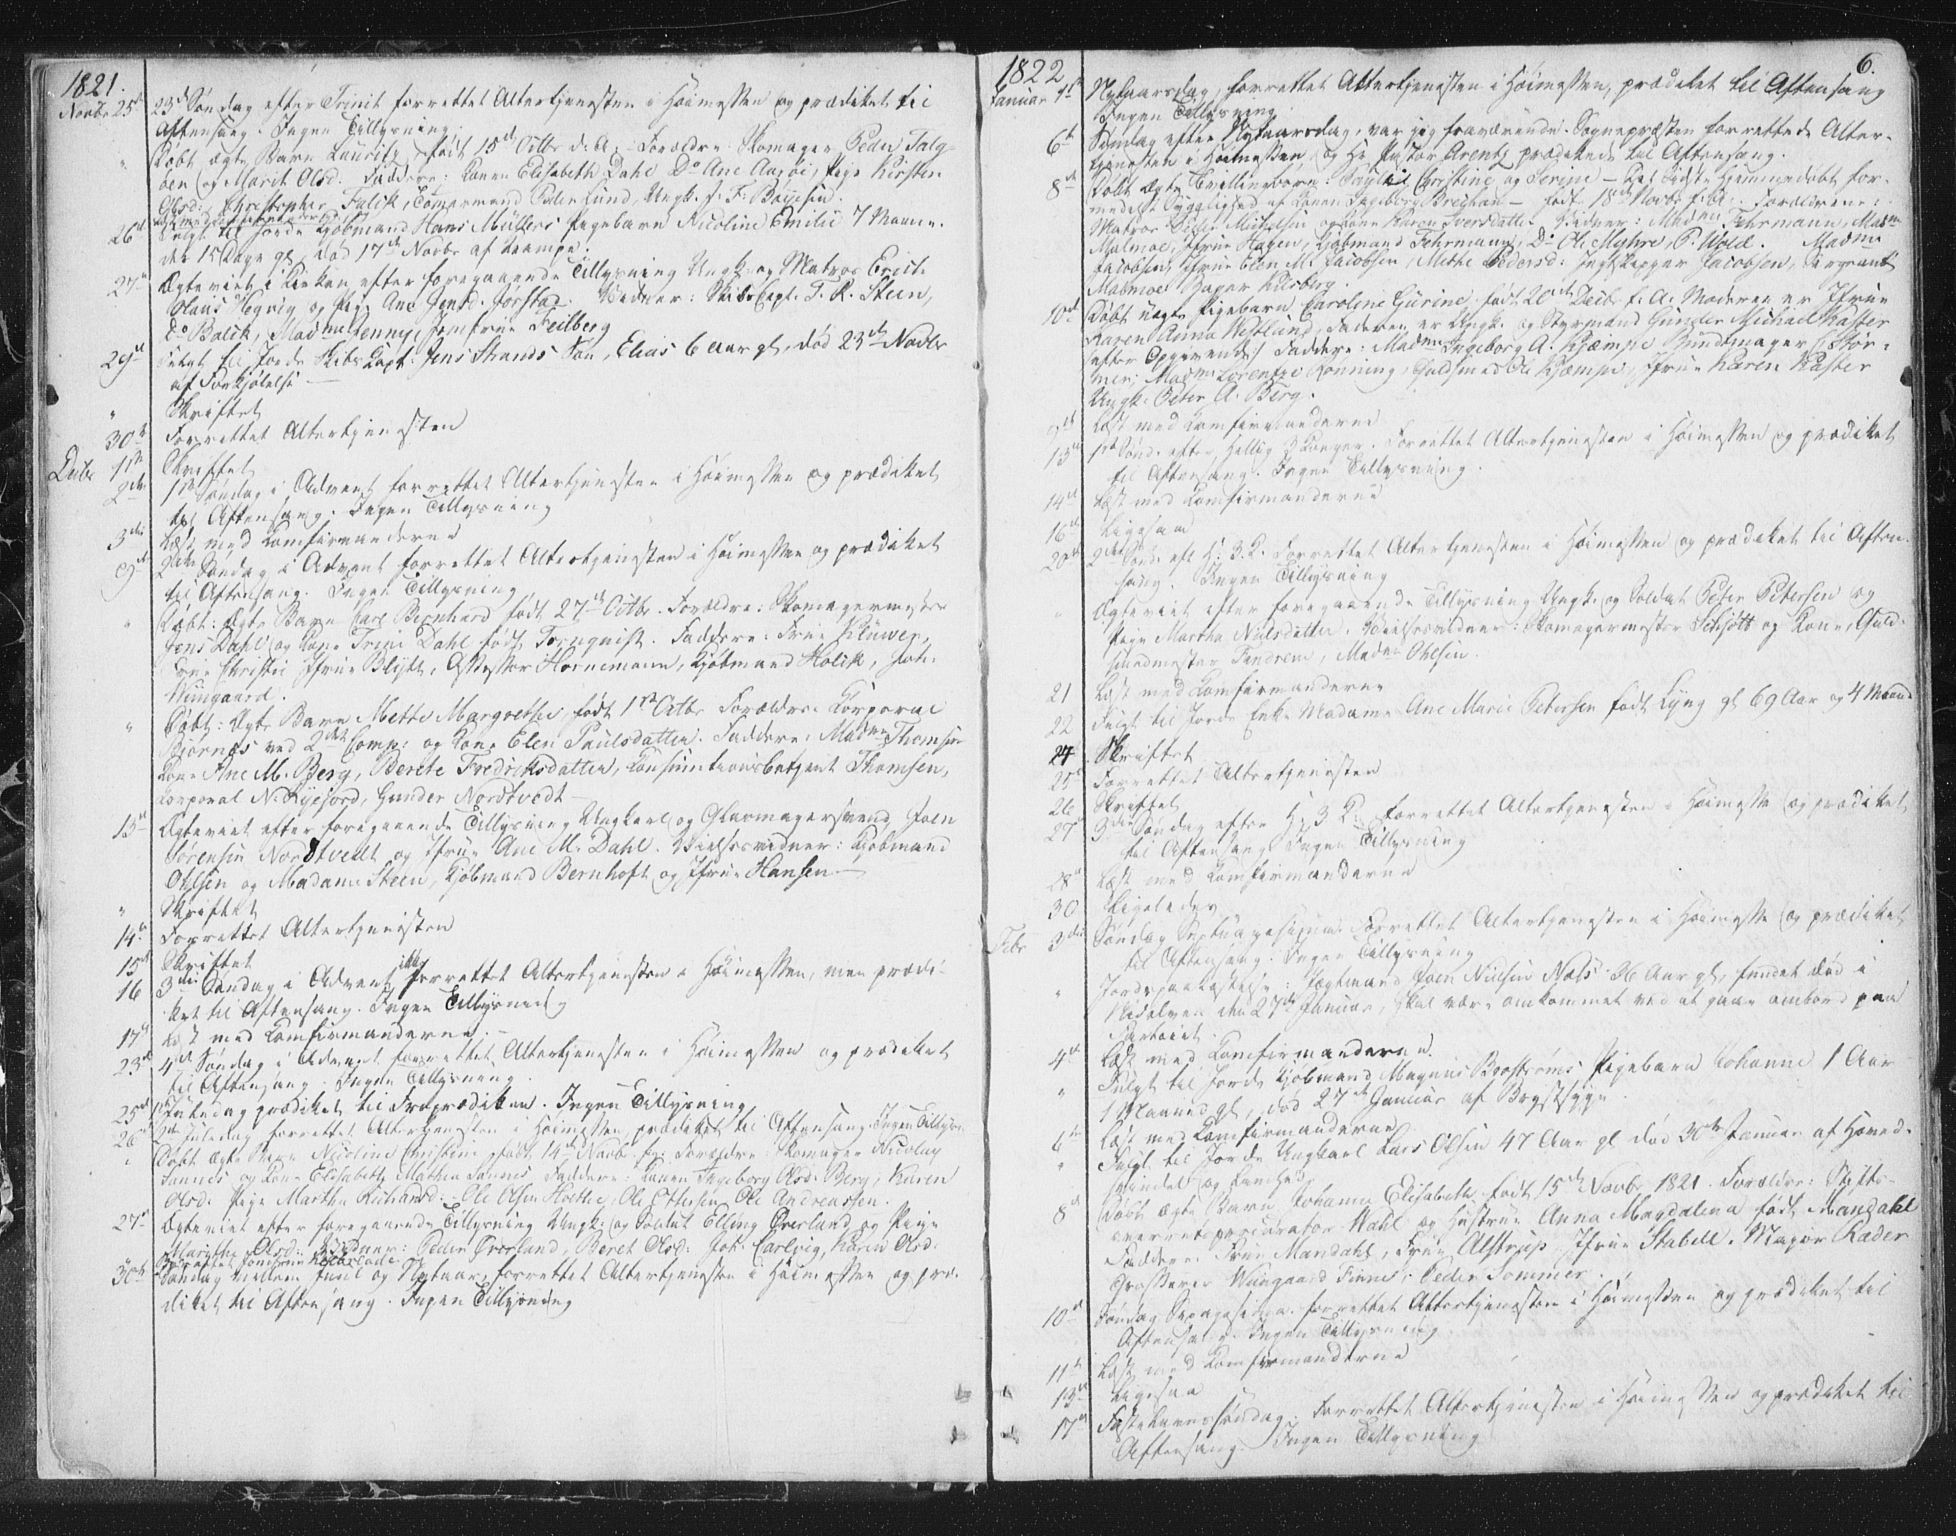 1821.
Novbr 25de 23de Søndag efter Trinit forrettet Altertjenesten i Høimessen og prædiket til
Aftensang. Ingen Tillysning.
" Døbt ægte Barn Lauritz, født 15de Octbr d. A. Forældre: Skomager Peder
og Marit Olsd. Faddere: Konen Elisabeth Dahl Do Ane Aasøi, Pige Kirsten
Olsd: Christopher Falck, Tømermand Peder Lund, Ungk. J. F. Boyesen.
26de Fulgt til Jorde Kjøbmand Hans Müllers Pigebarn Nicoline Emilie 7 Maane-
der 15 Dage gl, død 17de Novbr af Krampe.
27de Ægteviet i Kirken efter foregaaende Tillysning Ungk. og Matros Erich
Olaus Hegvig og Pige Ane Jorstad. Vidner: Skibs Capt. T. R. Steen,
Do Balck, Madme Jenny, Jomfrue Feilberg
29de Fulgt til Jorde Skibs Capt. Jens Strands Søn, Elias 6 Aar gl, død 23de Novbr
af Forkjølelse
" Skriftet
30te Forrettet Altertjenesten
Decbr 1ste Skriftet
2den 1ste Søndag i Advent forrettet Altertjenesten i Høimessen og prædiket
til Aftensang. Ingen Tillysning
3die Læst med Comfirmanderne
9de 2den Søndag i Advent forrettet Altertjenesten i Høimessen og prædiket
til Aftensang. Ingen Tillysning
" Døbt: Ægte Barn Carl Bernhard født 27de Octbr. Forældre: Skomagermester
Jens Dahl og Kone Trine Dahl født Tornquist. Faddere: Frue Klüwer,
Frue Christie Jfrue Blydt, Assessor Hornemann, Kjøbmand Holck, Joh.
Wiingaard.
" Døbt: Ægte Barn Mette Margrethe, født 1ste Octbr Forældre: Korporal
Bjørnes ved 2det Comp: og Kone Elen Paulsdatter. Faddere: Madme Thomsen
Kone Ane M. Berg, Berete Fredriksdatter, Consumtionsbetjent Thomsen,
Korporal N. Ryefjord, Gunder Nordtvedt
13de Ægteviet efter foregaaende Tillysning Ungkarl og Glarmagersvend Joen
Sørensen Nordtvedt og Jfrue Ane M. Dahl. Vielsesvidner: Kjøbmand
Ohlsen og Madame Steen, Kjøbmand Bernhoft og Jfrue Hansen
" Skriftet
14de Forrettet Altertjenesten
15de Skriftet
16 3die Søndag i Advent ikke forrettet Altertjenesten i Høimessen, men prædi-
ket til Aftensang. Ingen Tillysning
17de Læst med Comfirmanderne.
23de 4de Søndag i Advent forrettet Altertjenesten i Høimessen og prædiket
til Aftensang. Ingen Tillysning.
25de 1ste Juledag prædiket til Froprædiken. Ingen Tillysning
26de 2den Juledag forrettet Altertjenesten i Høimessen prædiket til Aftensang. Ingen Tillysn
" Døbt ægte Barn Nicoline Christine født 14de Novbr. Forældre: Skomager Nicolay
Sannes og Kone Elisabeth Mathea Sannes Faddere: Konen Ingeborg Olsd. Berg, Karen
Olsd. Pige Marthe Richard: Ole Olsen Ole Ottersen Ole Andreassen.
27de Ægteviet efter foregaaende Tillysning Ungk: og Soldat Elling Øverland og Pige
Marithe Olsd. Vidner: Peder Øverland, Beret Olsd: Joh: Carlvig, Karen Olsd.
30te Søndag mellem Juul og Nytaar, forrettet Altertjenesten i Høimessen og præ-
diket til Aftensang. Ingen Tillysning
1822
6.
Januar 1ste Nytaarsdag, forrettet Altertjenesten i Høimessen, prædiket til Aftensang
Ingen Tillysning.
6te Søndag efter Nytaarsdag, var jeg fraværende. Sognepræsten forrettede Alter-
tjenesten i Høimessen og Hr Pastor Arentz prædikede til Aftensang.
8de Døbt Ægte Tvillingbørn: Christine og Serene — Det sidste hjemmedøbt for-
medelst Svaghed af Konen Ingeborg — født 18de Novbr f. A. Forældrene:
Matros Peder Michelsen og Kone Karen Iversdatter. Faddere: Madme Fehrmann, Madme
Malmoe, Jfrue Hagen, Kjøbmand Fehrmann, Do Ol. Myhre, P. Wold. Madme
Jacobsen, Jfrue Elen M. Jacobsen, Mette Pedersd: Jagtskipper Jacobsen, Sergeant
Malmoe Bager Kilsberg.
10de Døbt uægte Pigebarn Caroline Gurine, født 20de Decbr f. A. Moderen er Jfrue
Karen Anna Westlund, Faderen er Ungk. og Styrmand Gunder Michael Kaster
efter Opgivende. Faddere: Madme Ingeborg A. Kjæmpe Bundtmager Stør-
mer, Madme Lorentze Rønning, Guldsmed Ol Kjæmpe, Jfrue Karen Kaster
Ungk. Peter A. Berg.
Læst med Comfirmanderne
13de 1ste Sønd. efter Hellig 3 Konger. Forrettet Altertjenesten i Høimessen og prædiket
til Aftensang. Ingen Tillysning.
14de Læst med Comfirmanderne
16de Ligesaa
20de 2den Sønd. eft H: 3 K. Forrettet Altertjenesten i Høimessen og prædiket til Aften-
sang. Ingen Tillysning
" Ægteviet efter foregaaende Tillysning Ungk. og Soldat Peter Petersen og
Pige Martha Nielsdatter. Vielsesvidner: Skomagermester Schiøtt og Kone, Guld-
smedmester Tendrem, Madme Ohlsen.
21 Læst med Comfirmanderne
22 Fulgt til Jorde Enke Madame Ane Marie Petersen født Lyng gl 69 Aar og 4 Maand
24 Skriftet
25de Forrettet Altertjenesten
26 Skriftet
27de 3die Søndag efter H: 3 K: Forrettet Altertjenesten i Høimesse og prædiket
til Aftensang Ingen Tillysning
28de Læst med Comfirmanderne
30 Ligeledes
Febr 3die Søndag Septuagesimæ. Forrettet Altertjenesten i Høimesse og prædiket
til Aftensang. Ingen Tillysning
" Jordspaakastelse: Jægtmand Joen Nielsen Næss 36 Aar gl, fundet død i
Nidelven den 27de Januar, skal være omkommet ved at gaae ombord paa
Fartøiet.
4de Læst med Comfirmanderne.
" Fulgt til Jorde Kjøbmand Magnus Brostrøms Pigebarn Johanne 1 Aar
1 Maaned gl, død 27de Januar af Brystsyge.
6te Læst med Comfirmanderne
" Fulgt til Jorde Ungkarl Lars Olsen 47 Aar gl død 30te Januar af Hoved-
svindel og Lamhed
8de Døbt ægte Barn Johanna Elisabeth født 15de Novbr 1821. Forældre: Stifts-
overretsprocurator Wahl og Hustrue Anna Magdalena født Mandahl
Faddere: Frue Mandahl, Frue Alstrup, Jfrue Stabell, Major Ræder
Grosserer Wiingaard Finne, Peder Sommer
10de Søndag Sexagesima. forrettet Altertjenesten i Høimessen og prædiket til
Aftensang. Ingen Tillysning
11te Læst med Comfirmanderne
13de Ligesaa
17de Fastelavnssøndag. Forrettet Altertjenesten i Høimessen og prædiket til
Aftensang. Ingen Tillysning